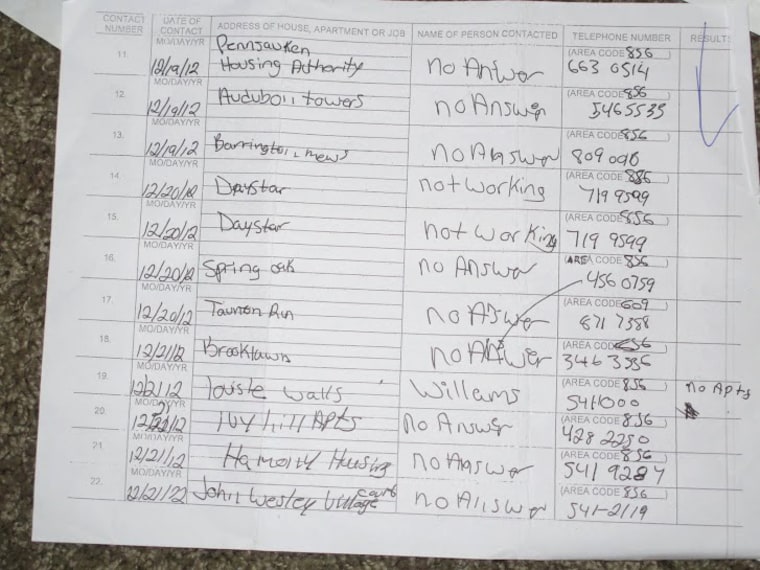 CONTACT NUMBER DATE OF CONTACT ADDRESS OF HOUSE, APARTMENT OR JOB NAME OF PERSON CONTACTED TELEPHONE NUMBER RESULTS
MO/DAY/YR Pennsauken (AREA CODE 856
11. 12/19/12 Housing Authority no Answer 663 0514
MO/DAY/YR (AREA CODE 856
12. 12/19/12 Audubon towers no Answer 546 5535
MO/DAY/YR (AREA CODE 856
13. 12/19/12 Barrington mews no Answer 809 090
MO/DAY/YR (AREA CODE 886
14. 12/20/12 Daystar not working 719 9599
MO/DAY/YR (AREA CODE 856
15. 12/20/12 Daystar not working 719 9599
MO/DAY/YR (AREA CODE 856
16. 12/20/12 Spring oak no Answer 456 0759
MO/DAY/YR (AREA CODE 609
17. 12/20/12 Run no Answer 871 7388
MO/DAY/YR (AREA CODE 856
18. 12/21/12 Brooklawn no Answer 346 3535
MO/DAY/YR (AREA CODE 856
19. 12/21/12 watts Willams 541-1000 no Apts
MO/DAY/YR (AREA CODE 856
20. Ivy hill Apts no Answer 428 2250
MO/DAY/YR (AREA CODE 856
21. 12/21/12 Housing no Answer 541 9287
MO/DAY/YR (AREA CODE 856
22. 12/21/22 John Wesley Village court no Answer 541-2119